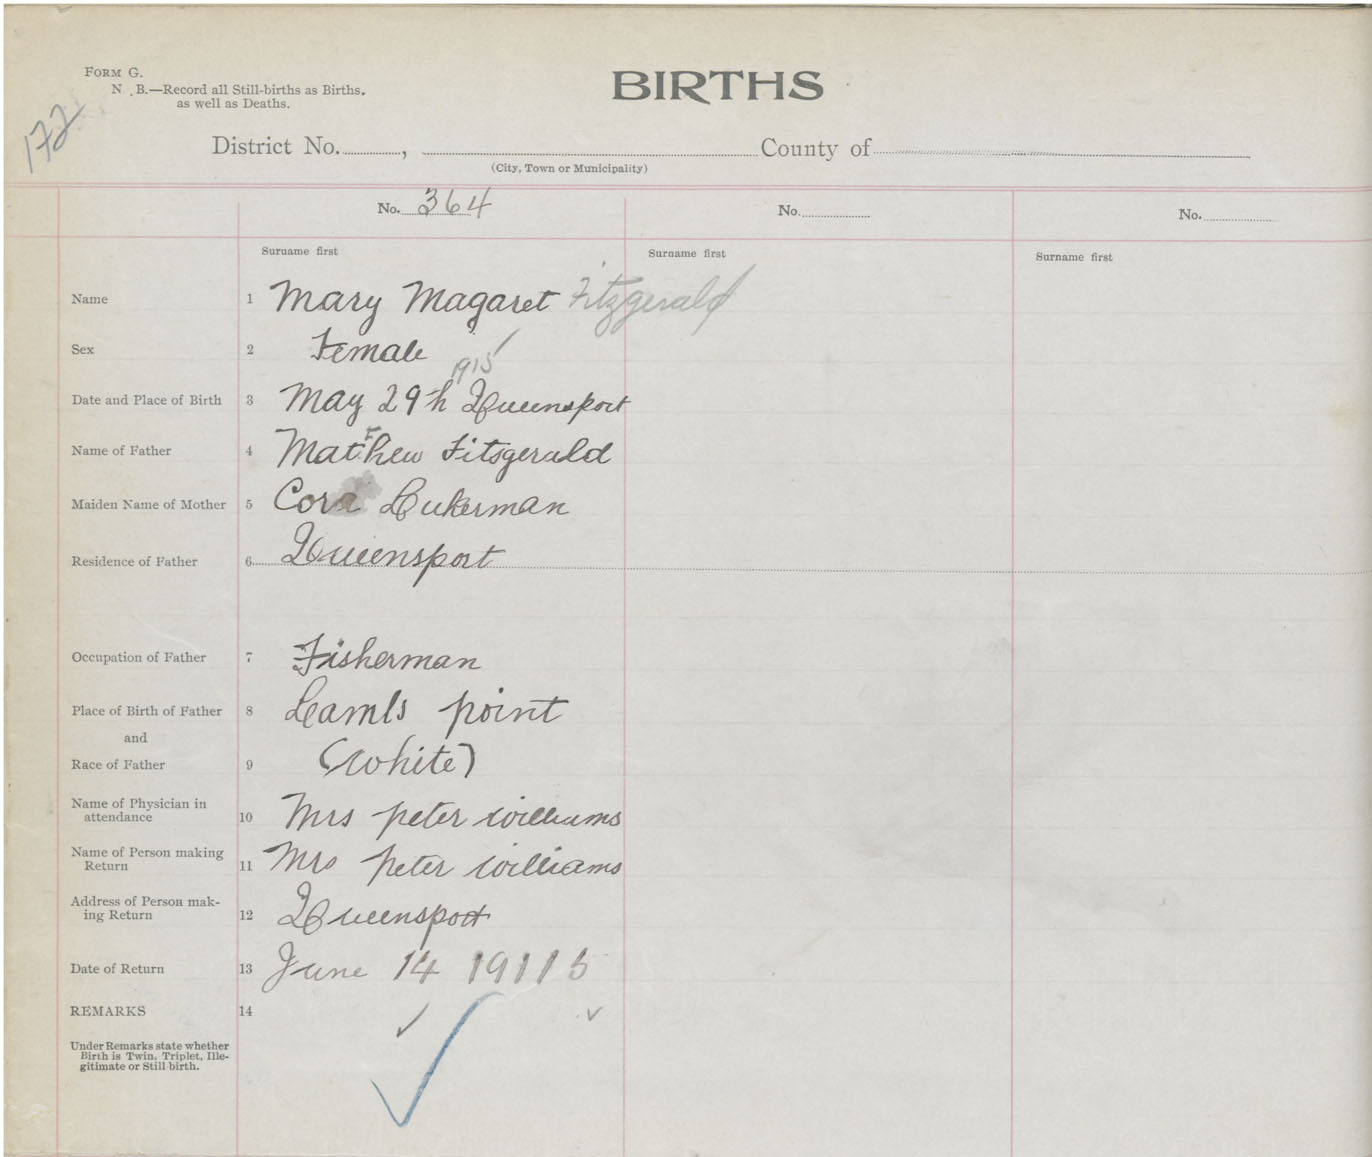 FORM G.
N.B.—Record all Still-births as Births,
as well as Deaths.
BIRTHS
172
District No. , County of
(City, Town or Municipality)
No. 364 No. No.
Surname first Surname first Surname first
Name 1 Mary Magaret Fitzgerald
Sex 2 Female
1915
Date and Place of Birth 3 May 29h Queensport
Name of Father 4 Mathew Fitsgerald
Maiden Name of Mother 5 Cora
Residence of Father 6 Queensport
Occupation of Father 7 Fisherman
Place of Birth of Father 8 point
and
Race of Father 9 (White)
Name of Physician in
attendance 10 Mrs peter williams
Name of Person making
Return 11 Mrs peter williams
Address of Person mak-
ing Return 12 Queensport
Date of Return 13 June 14 19115
REMARKS 14
Under Remarks state whether
Birth is Twin, Triplet, Ille-
gitimate or Still-birth.